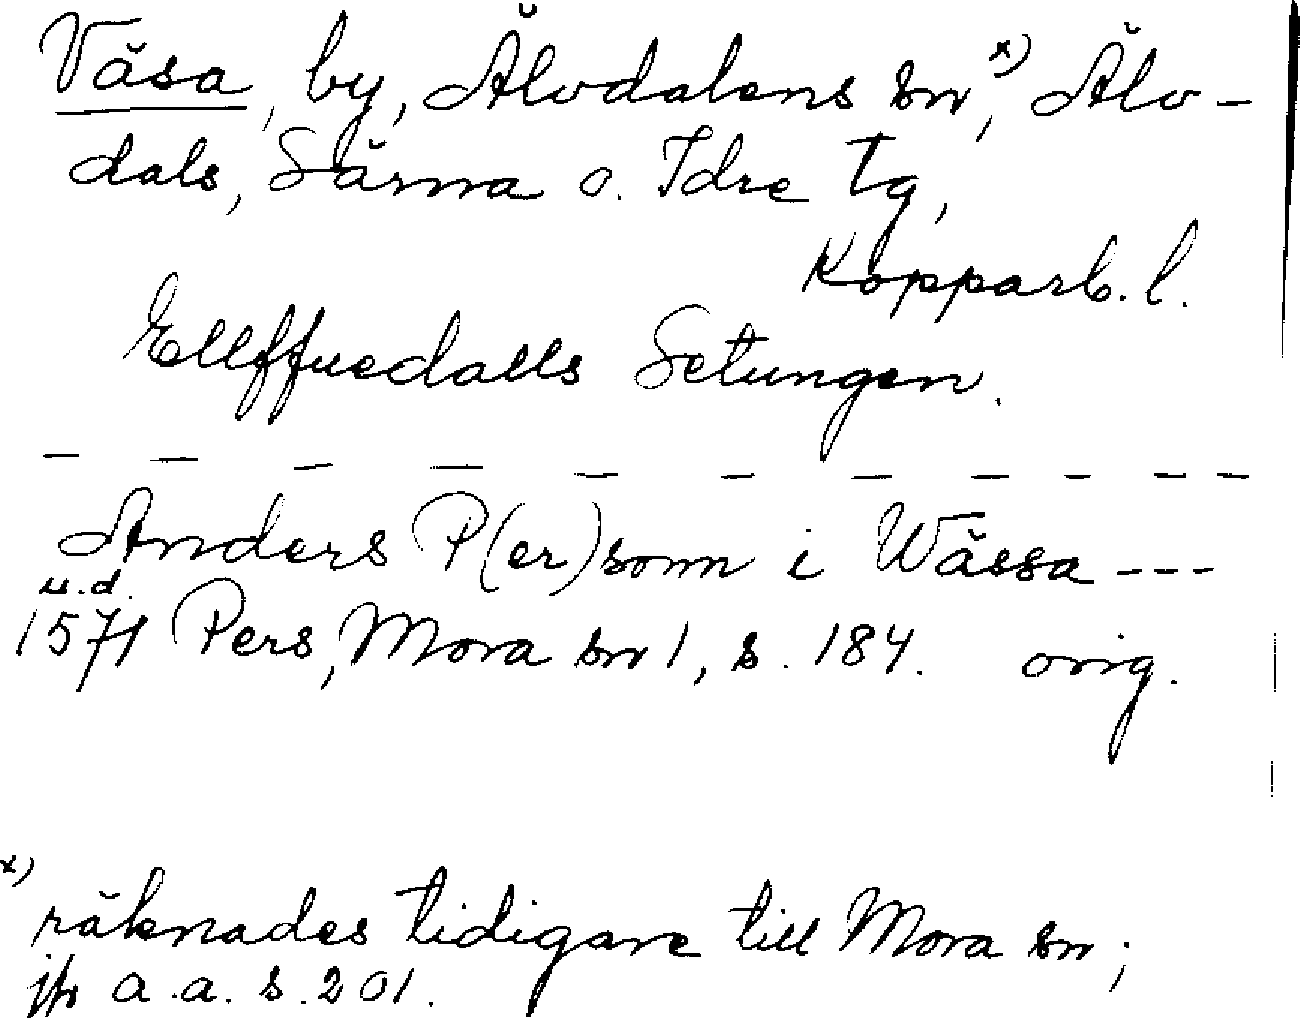 Väsa, by, Älvdalens sn,x) Älv-
dals, Särna o. Idre tg,
Kopparb. l.
Ellffuedalls Setungen.
— — — — — — — — — — —
Anders P(er)sonn i Wässa ---
u.d.
1571 Pers, Mora sn 1, s. 184. orig.
x)
räknades tidigare till Mora sn;
jfr a.a. s. 201.